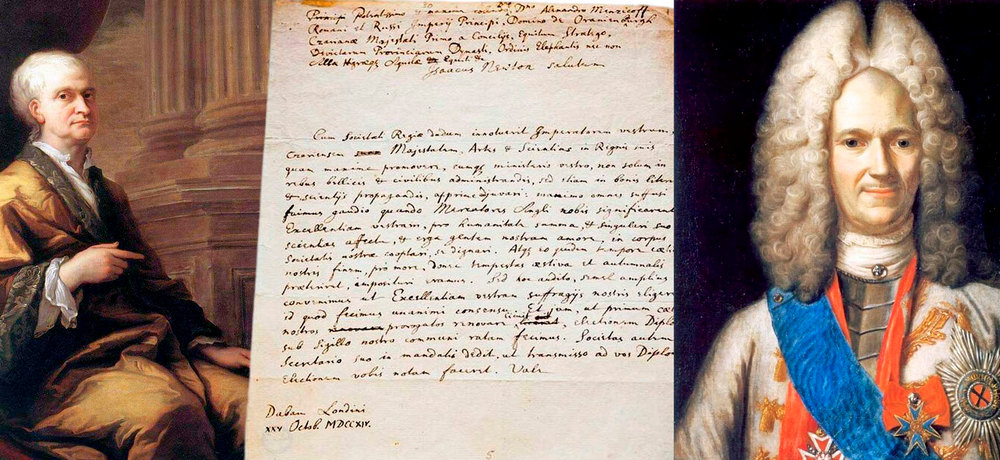 Principi Potentissimo D<sup>no</sup> Alexandro Menzicoff
Romani et Russi Imperij Principi, Domino de Oranienburgh
Czarianæ Majestati Primo a Consilijs, Equitum Stratego,
Devictarum Provinciarum Dynastæ, Ordinis Elephantis nec non
Aquilæ Equiti &c
Isaacus Newton salutem
Cum Societati Regiæ dudum innotuerit Imperatorem vestrum,
Majestatem, Artes & Scientias in Regnis suis
quam maxime promovere, eumque ministerio vestro, non solum in
rebus bellicis & civilibus administrandis, sed etiam in bonis literis
& scientijs propagandis, apprime juvari: omnes suffusi
fuimus gaudio quando Mercatores Angli nobis significarunt
Excellentiam vestram, pro humanitate summa, & singulari suo
scientias affectu, & erga gentem nostram amore, in corpus
Societatis nostræ cooptari, dignari. Atque eo quidem tempore cœtibus
nostris finem, pro more, donec tempestas æstiva et autumnalis
præteriret, imposituri eramus. Sed hoc audito, semel amplius
convenimus ut Excellentiam vestram suffragijs nostris eligeremus
id quod fecimus unanimi consensu. Et jam, ut primum cœtus
nostros prorogatos renovari, Electionem Diplomate
sub Sigillo nostro communi ratam fecimus. Societas autem
Secretario suo in mandatis dedit, ut transmisso ad vos Diplomate
Electionem vobis notam faceret. Vale
Dabam Londini
XXV Octob. MDCCXIV.